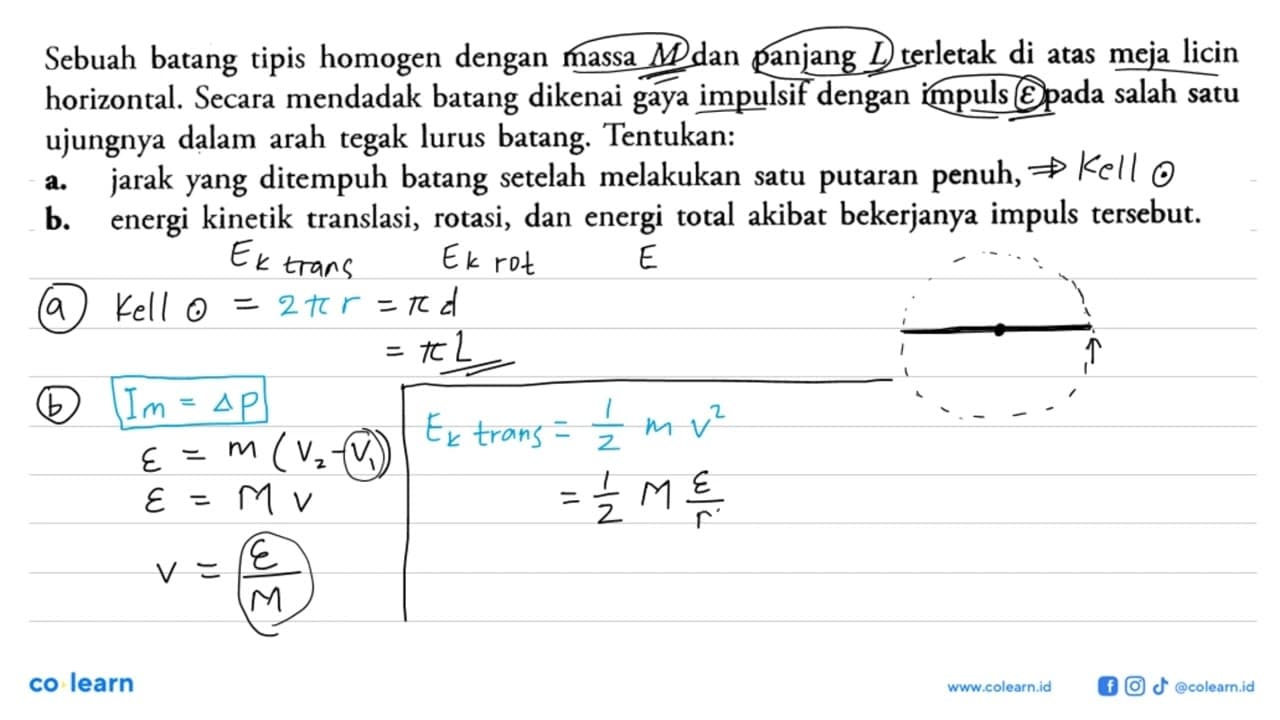 Sebuah batang tipis homogen dengan massa M dan panjang L terletak di atas meja licin
horizontal. Secara mendadak batang dikenai gaya impulsif dengan impuls ε pada salah satu
ujungnya dalam arah tegak lurus batang. Tentukan:
a. jarak yang ditempuh batang setelah melakukan satu putaran penuh, ⇒ Kell ⊙
b. energi kinetik translasi, rotasi, dan energi total akibat bekerjanya impuls tersebut.
Ek trans Ek rot E
(a) Kell ⊙ = 2πr = πd
= πL
(b) Im = Δp
ε = m (v₂ - v₁)
ε = M v
v = ε/M
Ek trans = 1/2 m v²
= 1/2 M ε/r
co learn
www.colearn.id
@colearn.id